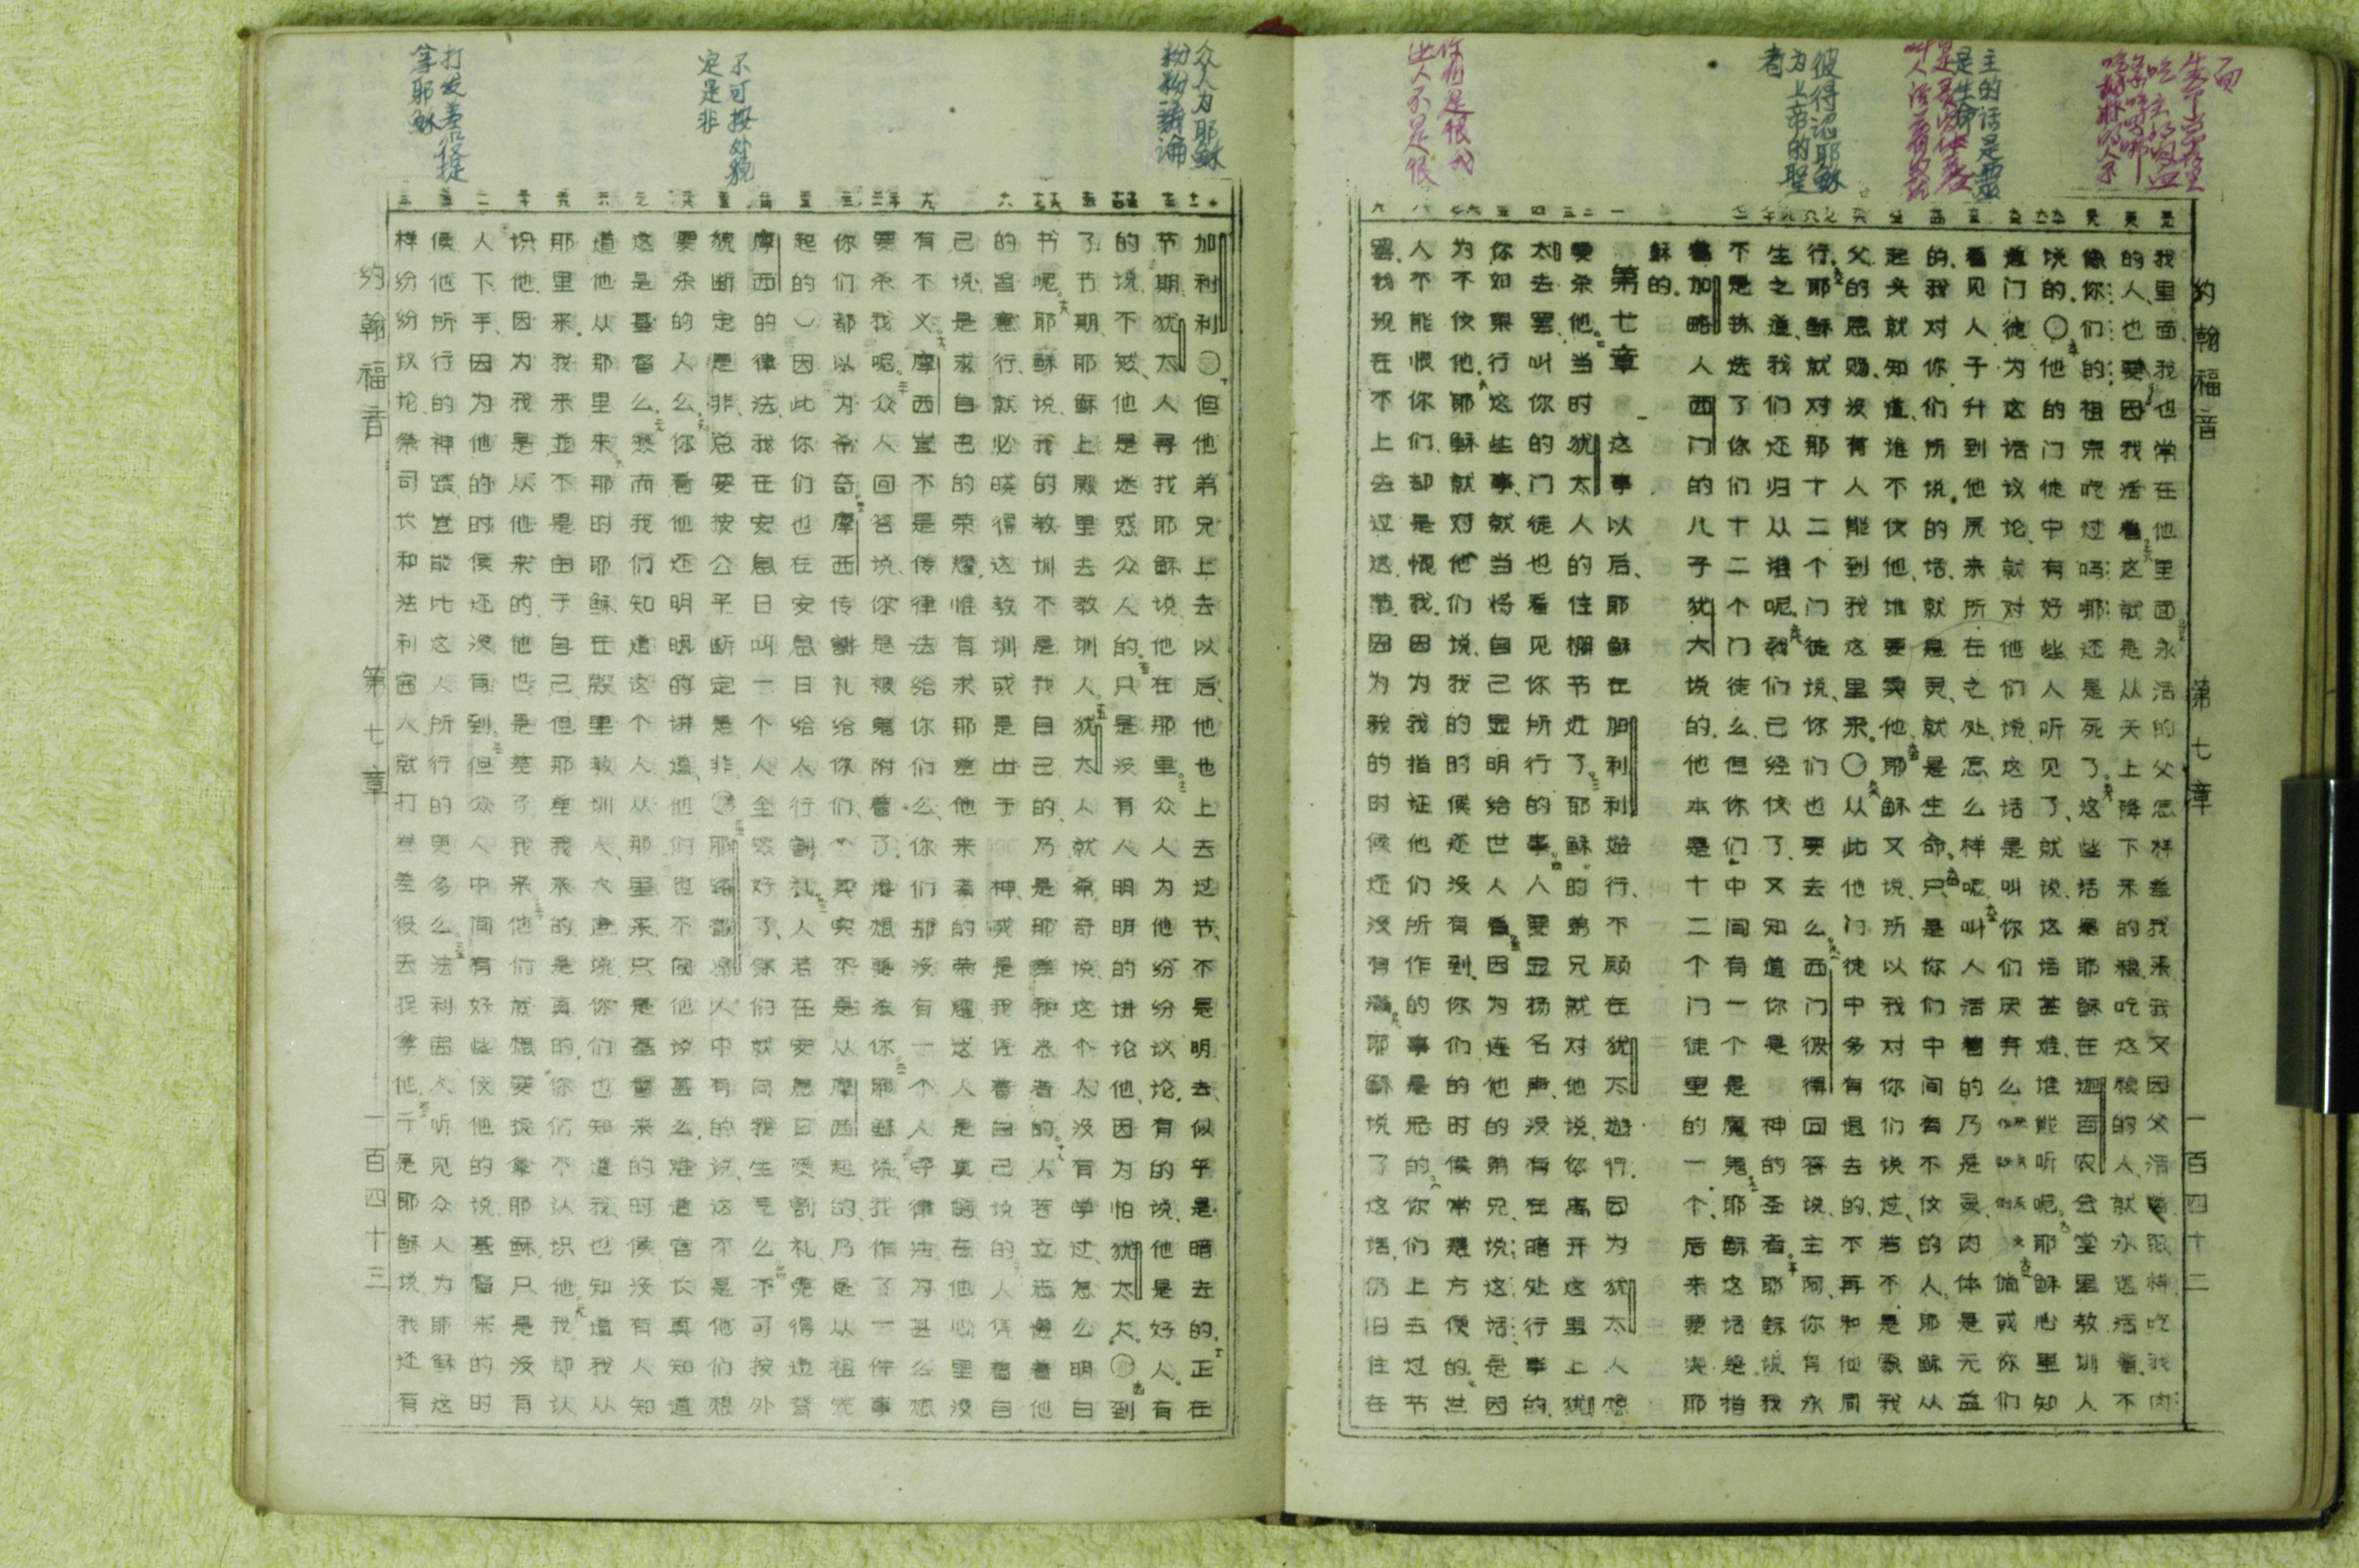 你们是恨我
世人不是恨
彼得认耶稣
为上帝的圣
者
主的话是灵
是生命
约翰福音 第七章 一百四十二
我里面我也常在他里面永活的父怎样差我来我又因父活着照样吃我肉
的人也要因我活着这就是从天上降下来的粮吃这粮的人就永远活着不
像你们的祖宗吃过吗哪还是死了这些话是耶稣在迦百农会堂里教训人
说的〇他的门徒中有好些人听见了就说这话甚难谁能听呢耶稣心里知
道门徒为这话议论就对他们说这话是叫你们厌弃么倘或你们
看见人子升到他原来所在之处怎么样呢叫人活着的乃是灵肉体是无益
的我对你们所说的话就是灵就是生命只是你们中间有不信的人耶稣从
起头就知道谁不信他谁要卖他耶稣又说所以我对你们说过若不是蒙我
父的恩赐没有人能到我这里来〇从此他门徒中多有退去的不再和他同
行耶稣就对那十二个门徒说你们也要去么西门彼得回答说主阿你有永
生之道我们还归从谁呢我们已经信了又知道你是神的圣者耶稣说我
不是拣选了你们十二个门徒么但你们中间有一个是魔鬼耶稣这话是指
着加略人西门的儿子犹大说的他本是十二个门徒里的一个后来要卖耶
稣的
第七章
这事以后耶稣在加利利游行不顾在犹太游行因为犹太人想
要杀他当时犹太人的住棚节近了耶稣的弟兄就对他说你离开这里上犹
太去罢叫你的门徒也看见你所行的事人要显扬名声没有在暗处行事的
你如果行这些事就当将自己显明给世人看因为连他的弟兄说这话是因
为不信他耶稣就对他们说我的时候还没有到你们的时候常是方便的世
人不能恨你们却是恨我因为我指证他们所作的事是恶的你们上去过节
罢我现在不上去过这节因为我的时候还没有满耶稣说了这话仍旧住在
众人为耶稣
纷纷议论
不可按外貌
定是非
打发差役捉
拿耶稣
加利利〇但他弟兄上去以后他也上去过节不是明去似乎是暗去的正在
节期犹太人寻找耶稣说他在那里众人为他纷纷议论有的说他是好人有
的说不然他是迷惑众人的只是没有人明明的讲论他因为怕犹太人〇到
了节期耶稣上殿里去教训人犹太人就希奇说这个人没有学过怎么明白
书呢耶稣说我的教训不是我自己的乃是那差我来者的人若立志遵着他
的旨意行就必晓得这教训或是出于神或是我凭着自己说的人凭着自
己说是求自己的荣耀惟有求那差他来者的荣耀这人是真的在他心里没
有不义摩西岂不是传律法给你们么你们却没有一个人守律法为甚么想
要杀我呢众人回答说你是被鬼附着了谁想要杀你耶稣说我作了一件事
你们都以为希奇摩西传割礼给你们(其实不是从摩西起的乃是从祖先
起的)因此你们也在安息日给人行割礼人若在安息日受割礼免得违背
摩西的律法我在安息日叫一个人全然好了你们就向我生气么不可按外
貌断定是非总要按公平断定是非〇耶路撒冷人中有的说这不是他们想
要杀的人么你看他还明明的讲道他们也不向他说甚么难道官长真知道
这是基督么然而我们知道这个人从那里来只是基督来的时候没有人知
道他从那里来那时耶稣在殿里教训人大声说你们也知道我也知道我从
那里来我来并不是由于自己但那差我来的是真的你们不认识他我却认
识他因为我是从他来的他也是差了我来他们就想要捉拿耶稣只是没有
人下手因为他的时候还没有到但众人中间有好些信他的说基督来的时
候他所行的神蹟岂能比这人所行的更多么法利赛人听见众人为耶稣这
样纷纷议论祭司长和法利赛人就打发差役去捉拿他于是耶稣说我还有
约翰福音 第七章 一百四十三